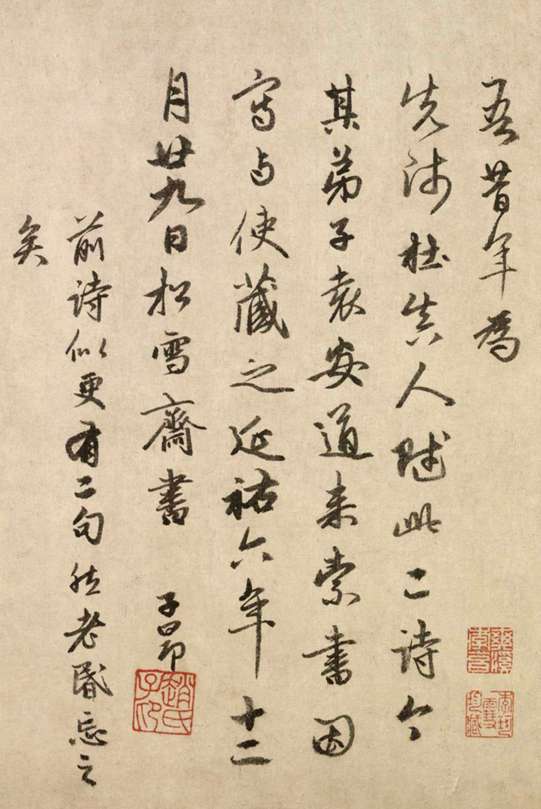 吾昔年為
先師杜真人賦此二詩今
其弟子袁安道来索書因
寫与使藏之延祐六年十二
月廿九日松雪齋書 子昂
趙氏子昂
前詩似更有二句然老昏忘之
矣